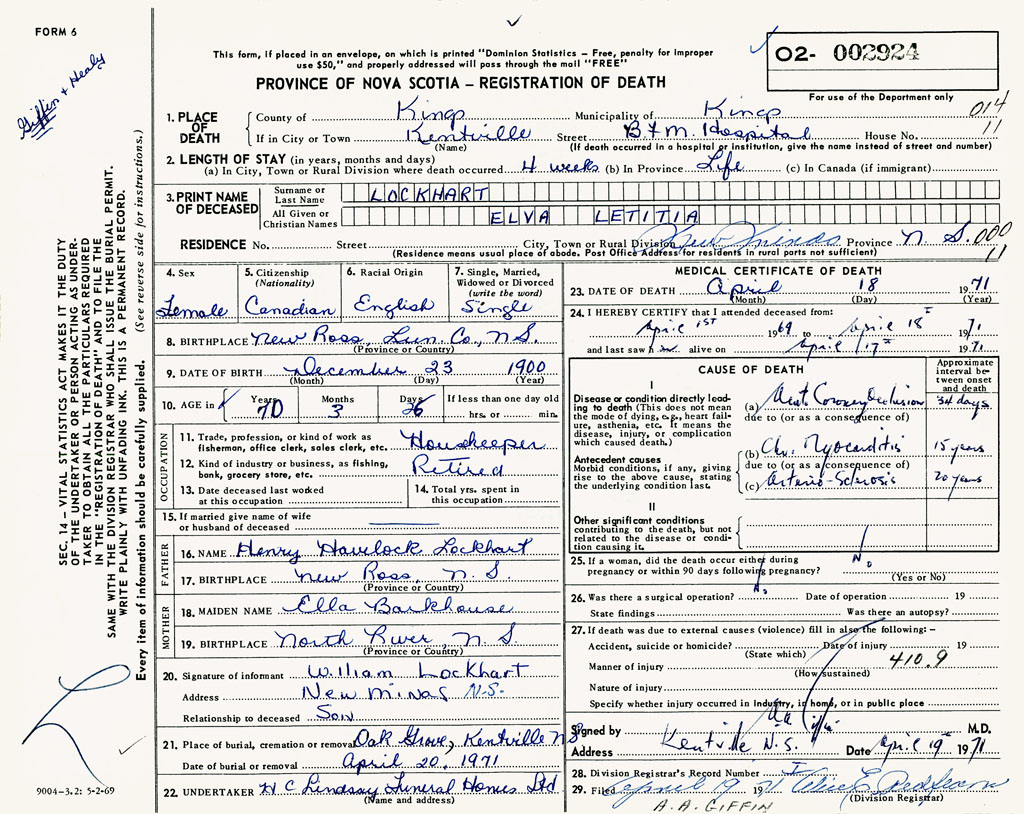 FORM 6
Giffin + Healy
This form, if placed in an envelope, on which is printed "Dominion Statistics – Free, penalty for improper
use $50," and properly addressed will pass through the mail "FREE"
PROVINCE OF NOVA SCOTIA – REGISTRATION OF DEATH
02- 002924
For use of the Department only
014
11
1. PLACE OF DEATH
County of Kings Municipality of Kings
If in City or Town Kentville Street B+M. Hospital House No.
(Name) (If death occurred in a hospital or institution, give the name instead of street and number)
2. LENGTH OF STAY (in years, months and days)
(a) In City, Town or Rural Division where death occurred 4 weeks (b) In Province Life (c) In Canada (if immigrant)
3. PRINT NAME OF DECEASED
Surname or Last Name LOCKHART
All Given or Christian Names ELVA LETITIA
RESIDENCE No. Street City, Town or Rural Division New Minas Province N.S. 000
(Residence means usual place of abode. Post Office Address for residents in rural ports not sufficient) 11
4. Sex
Female
5. Citizenship
(Nationality)
Canadian
6. Racial Origin
English
7. Single, Married,
Widowed or Divorced
(write the word)
Single
8. BIRTHPLACE New Ross, Lun. Co., N.S.
(Province or Country)
9. DATE OF BIRTH December 23 1900
(Month) (Day) (Year)
10. AGE in Years 70 Months 3 Days 26 If less than one day old
hrs. or min.
OCCUPATION
11. Trade, profession, or kind of work as
fisherman, office clerk, sales clerk, etc. Housekeeper
12. Kind of industry or business, as fishing,
bank, grocery store, etc. Retired
13. Date deceased last worked
at this occupation
14. Total yrs. spent in
this occupation
15. If married give name of wife
or husband of deceased
FATHER
16. NAME Henry Havelock Lockhart
17. BIRTHPLACE New Ross, N.S.
(Province or Country)
MOTHER
18. MAIDEN NAME Ella Barkhouse
19. BIRTHPLACE North River, N.S.
(Province or Country)
20. Signature of informant William Lockhart
Address New Minas N.S.
Relationship to deceased Son
21. Place of burial, cremation or removal Oak Grove, Kentville NS
Date of burial or removal April 20, 1971
22. UNDERTAKER W C Lindsay Funeral Homes Ltd
(Name and address)
MEDICAL CERTIFICATE OF DEATH
23. DATE OF DEATH April 18 1971
(Month) (Day) (Year)
24. I HEREBY CERTIFY that I attended deceased from:
April 1st 1969 to April 18th 1971
and last saw her alive on April 17th 1971
CAUSE OF DEATH
Approximate
interval be-
tween onset
and death
I
Disease or condition directly lead-
ing to death (This does not mean
the mode of dying, e.g., heart fail-
ure, asthenia, etc. It means the
disease, injury, or complication
which caused death.)
(a) Acut. Coronary Occlusion 34 days
due to (or as a consequence of)
Antecedent causes
Morbid conditions, if any, giving
rise to the above cause, stating
the underlying condition last.
(b) Chr. Myocarditis 15 years
due to (or as a consequence of)
(c) Arterio-Sclerosis 20 years
II
Other significant conditions
contributing to the death, but not
related to the disease or condi-
tion causing it.
25. If a woman, did the death occur either during
pregnancy or within 90 days following pregnancy? No
(Yes or No)
26. Was there a surgical operation? No Date of operation 19
State findings Was there an autopsy?
27. If death was due to external causes (violence) fill in also the following: –
Accident, suicide or homicide? Date of injury 19
(State which)
Manner of injury 410.9
(How sustained)
Nature of injury
Specify whether injury occurred in industry, in home, or in public place
Signed by AA Giffin M.D.
Address Kentville N.S. Date April 19th 1971
28. Division Registrar's Record Number
29. Filed April 19 1971
(Division Registrar)
A.A. GIFFIN
SEC. 14 – VITAL STATISTICS ACT MAKES IT THE DUTY
OF THE UNDERTAKER OR PERSON ACTING AS UNDER-
TAKER TO OBTAIN ALL THE PARTICULARS REQUIRED
IN THE "REGISTRATION OF DEATH" AND TO FILE THE
SAME WITH THE DIVISION REGISTRAR WHO SHALL ISSUE THE BURIAL PERMIT.
WRITE PLAINLY WITH UNFADING INK. THIS IS A PERMANENT RECORD.
Every item of information should be carefully supplied. (See reverse side for instructions.)
9004-3.2: 5-2-69